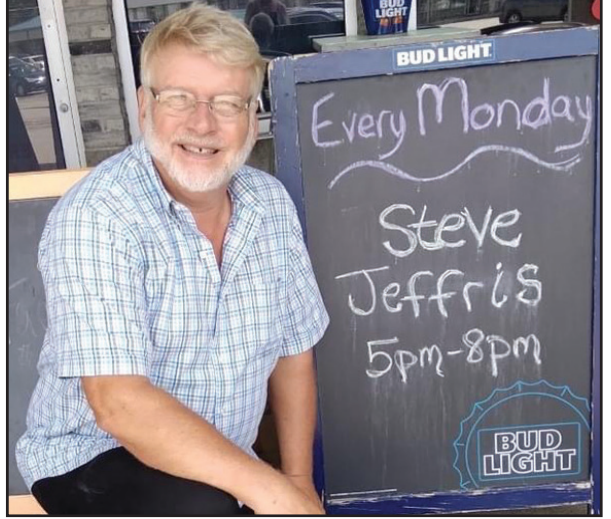 BUD
LIGHT
BUD LIGHT
Every Monday
Steve
Jeffris
5pm-8pm
BUD
LIGHT